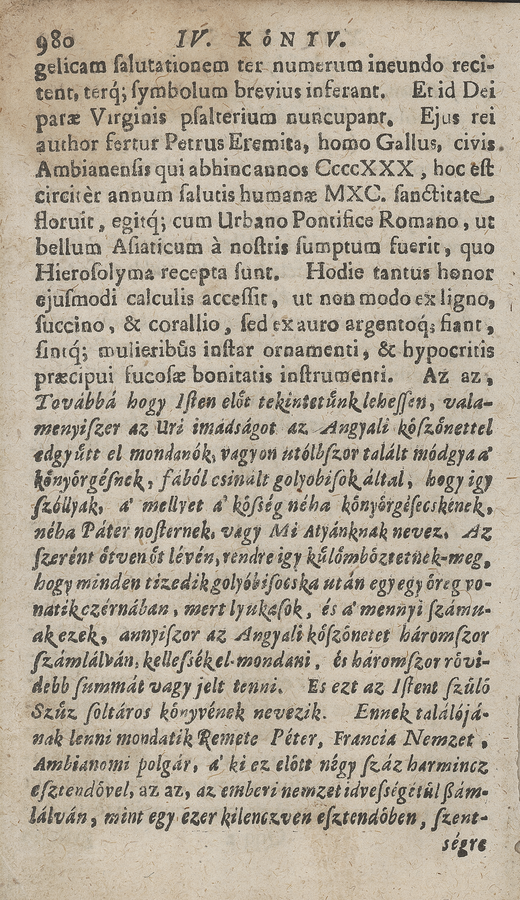 980 IV. KöNYV.
gelicam ſalutationem ter numerum ineundo reci-
tent, terq́; ſymbolum brevius inferant. Et id Dei
paræ Virginis pſalterium nuncupant. Ejus rei
author fertur Petrus Eremita, homo Gallus, civis
Ambianenſis qui abhinc annos CcccXXX, hoc eſt
circitèr annum ſalutis humanæ MXC. ſanctitate
floruit, egitq́; cum Urbano Pontifice Romano, ut
bellum Aſiaticum à noſtris ſumptum fuerit, quo
Hieroſolyma recepta ſunt. Hodie tantus honor
ejuſmodi calculis acceſſit, ut non modo ex ligno,
ſuccino, & corallio, ſed ex auro argentoq́; fiant,
ſintq́; mulieribûs inſtar ornamenti, & hypocritis
præcipui fucoſæ bonitatis inſtrumenti. Az az,
Továbbá hogy Iſten elöt tekintetünk leheſſen, vala-
menyiſzer az Uri imádságot az Angyali köſzönettel
edgyütt el mondanók, vagyon utólbſzor talált módgya a'
könyörgéſnek, fából csinált golyobiſok által, hogy igy
ſzóllyak, a' mellyet a' köſség néha könyörgéſecskének,
néha Páter noſternek, vagy Mi Atyánknak nevez. Az
ſzerént ötven öt lévén, rendre igy külömböztetnek-meg,
hogy minden tizedik golyóbiſocska után egy egy öreg vo-
natik czérnában, mert lyukaſok, és a' mennyi ſzámu-
ak ezek, annyiſzor az Angyali köſzönetet háromſzor
ſzámlálván, kelleſsék el-mondani, és háromſzor rövi-
debb ſummát vagy jelt tenni. Es ezt az Iſtent ſzülö
Szüz ſoltáros könyvének nevezik. Ennek találójá-
nak lenni mondatik Remete Péter, Francia Nemzet,
Ambianomi polgár, a' ki ez elött négy ſzáz harmincz
eſztendövel, az az, az emberi nemzet idveſségétül ſzám-
lálván, mint egy ezer kilenczven eſztendöben, ſzent-
ségre